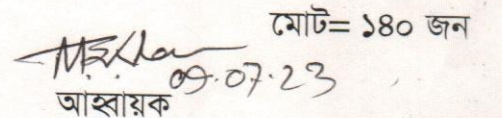 মোট= ১৪০ জন
০৯.০7.23
আহ্বায়ক